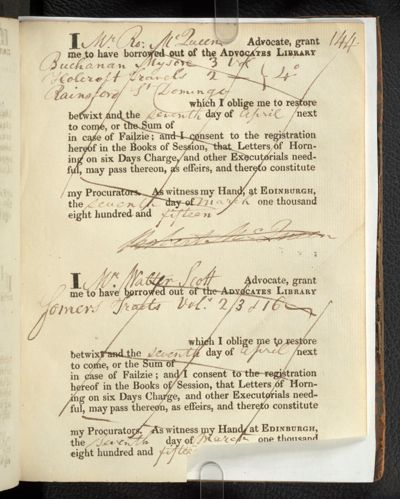 144
I, Mr. Ro. McQueen Advocate, grant
me to have borrowed out of the ADVOCATES LIBRARY
Buchanan Mysore 3 Vol.
Holcroft Travels 2 — 4o
Rainsford St Domingo
which I oblige me to restore
betwixt and the seventh day of April next
to come, or the Sum of
in case of Failzie; and I consent to the registration
hereof in the Books of Session, that Letters of Horn-
ing on six Days Charge, and other Executorials need-
ful, may pass thereon, as effeirs, and thereto constitute
my Procurators. As witness my Hand, at EDINBURGH,
the seventh day of March one thousand
eight hundred and fifteen
Robert McQueen
I, Mr. Walter Scott Advocate, grant
me to have borrowed out of the ADVOCATES LIBRARY
Somers Tracts Vol. 2, 3 & 16
which I oblige me to restore
betwixt and the seventh day of April next
to come, or the Sum of
in case of Failzie; and I consent to the registration
hereof in the Books of Session, that Letters of Horn-
ing on six Days Charge, and other Executorials need-
ful, may pass thereon, as effeirs, and thereto constitute
my Procurators. As witness my Hand, at EDINBURGH,
the seventh day of March one thousand
eight hundred and fifteen